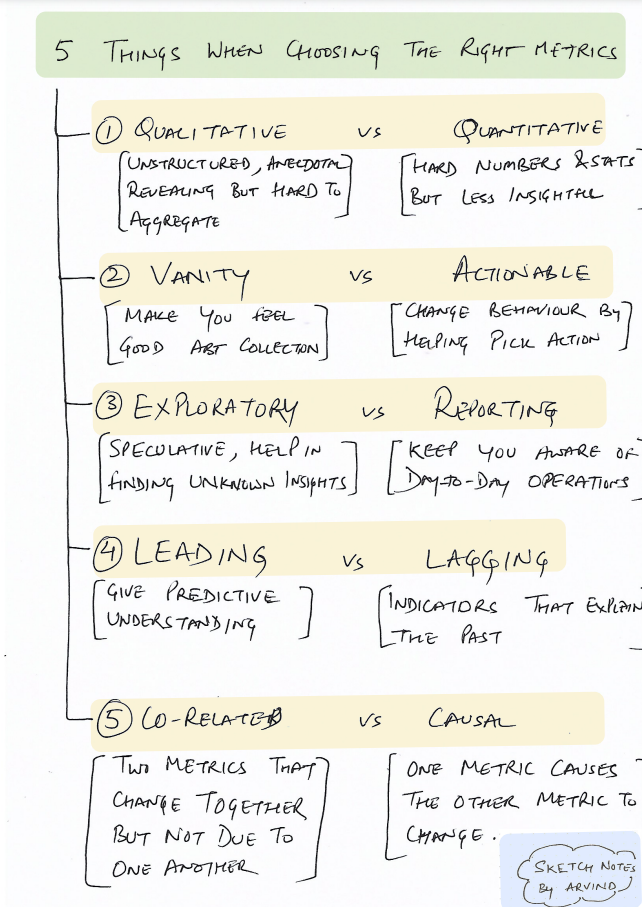 5 THINGS WHEN CHOOSING THE RIGHT METRICS
① QUALITATIVE VS QUANTITATIVE
[UNSTRUCTURED, ANECDOTAL
REVEALING BUT HARD TO
AGGREGATE]
[HARD NUMBERS & STATS
BUT LESS INSIGHTFUL
② VANITY VS ACTIONABLE
[MAKE YOU FEEL
GOOD ABT COLLECTON]
[CHANGE BEHAVIOUR BY
HELPING PICK ACTION]
③ EXPLORATORY VS REPORTING
[SPECULATIVE, HELP IN
FINDING UNKNOWN INSIGHTS]
[KEEP YOU AWARE OF
DAY-TO-DAY OPERATIONS]
④ LEADING VS LAGGING
[GIVE PREDICTIVE
UNDERSTANDING]
[INDICATORS THAT EXPLAIN
THE PAST
⑤ CO-RELATED VS CAUSAL
[TWO METRICS THAT
CHANGE TOGETHER
BUT NOT DUE TO
ONE ANOTHER]
[ONE METRIC CAUSES
THE OTHER METRIC TO
CHANGE.
SKETCH NOTES
BY ARVIND